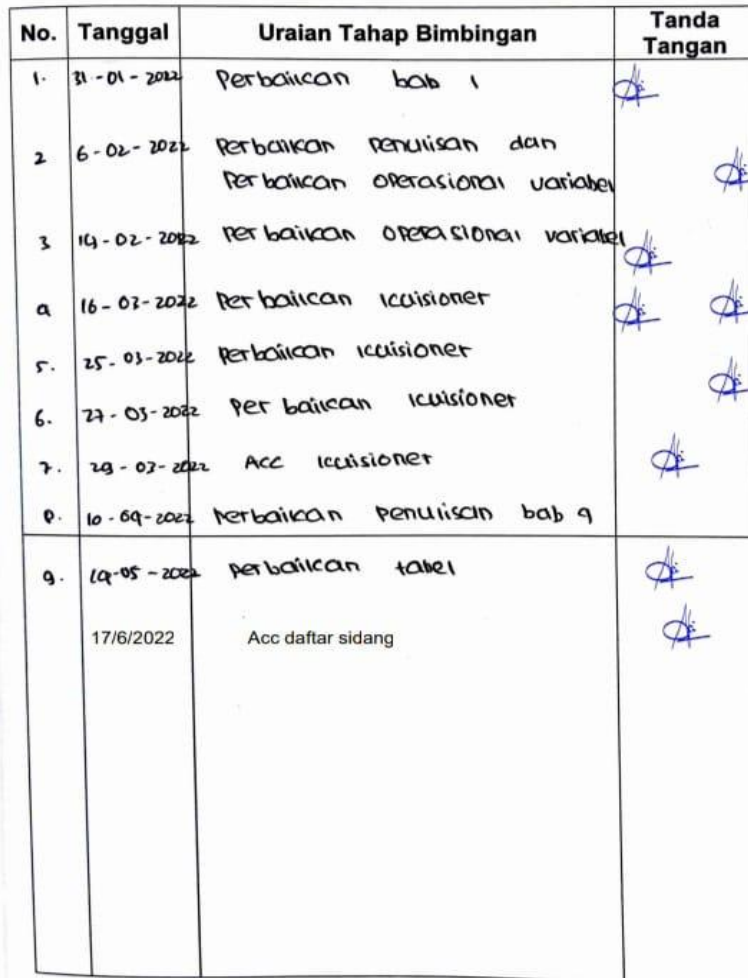 No. Tanggal Uraian Tahap Bimbingan Tanda Tangan
1. 31-01-2022 Perbaikan bab 1
2 6-02-2022 Perbaikan penulisan dan
Perbaikan operasional variabel
3 14-02-2022 Perbaikan operasional variabel
4 16-03-2022 Perbaikan kuisioner
5. 25-03-2022 Perbaikan kuisioner
6. 27-03-2022 Perbaikan kuisioner
7. 29-03-2022 Acc kuisioner
8. 10-04-2022 Perbaikan penulisan bab 4
9. 19-05-2022 Perbaikan tabel
17/6/2022 Acc daftar sidang